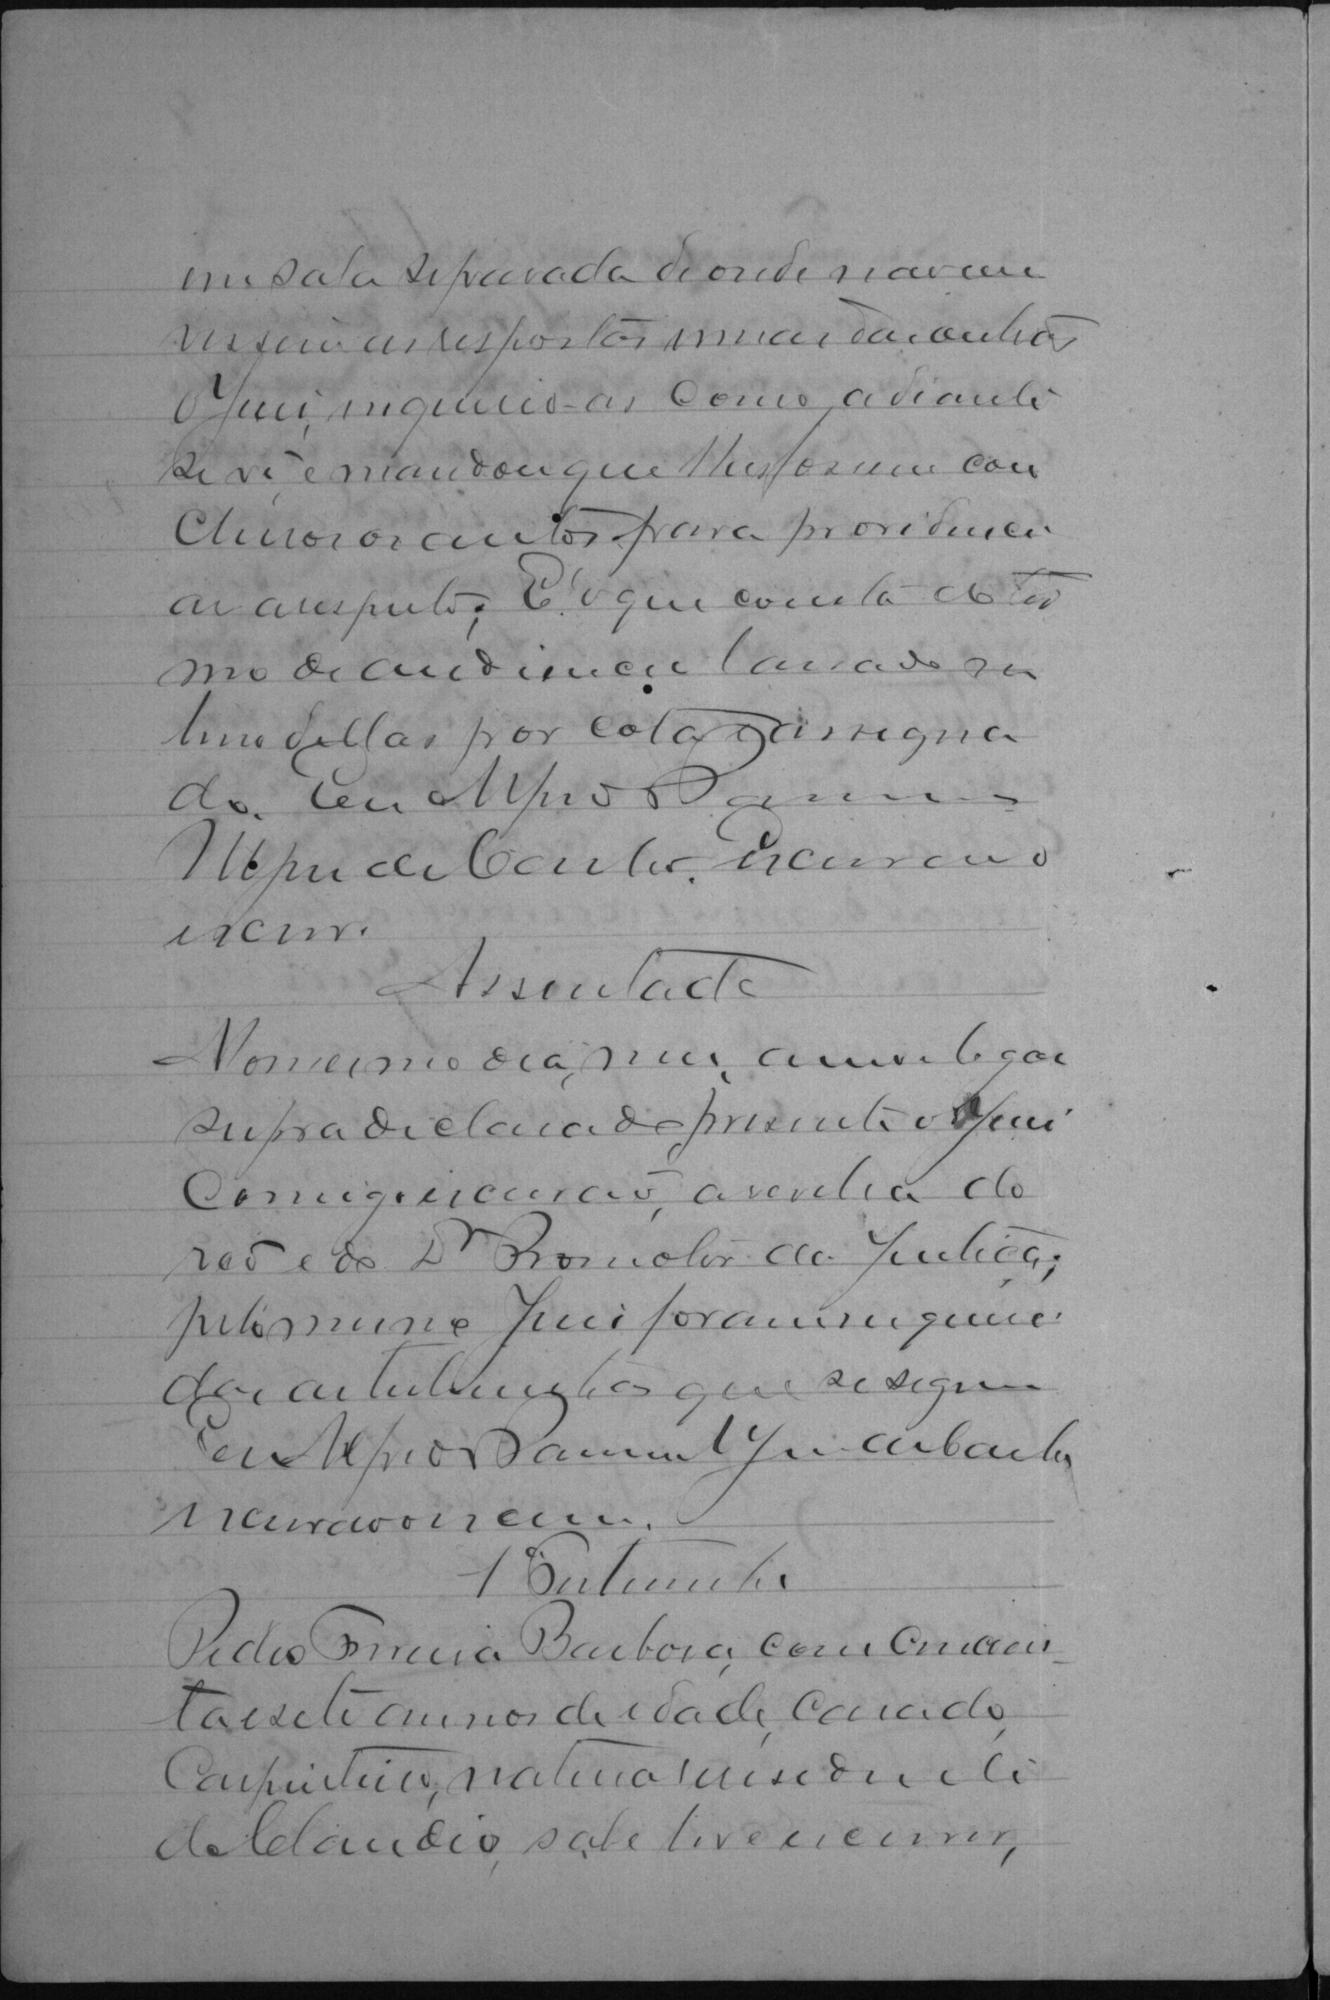 em sala separada de onde não se
ouvissem as respostas umas das outras
o Juiz, inquerio-as como adiante
se vê, e mandou que lhes fossem con
clusos os autos para providenci
ar a respeito; É o que consta do ter
mo de audiencia lavrado no
livro dellas por cota assigna
do. Eu
de Castro. Escrivão
escrevi.
Assentada
No mesmo dia, mez, anno e logar
supra declarado presente o Juiz
Comigo escrivão, a revelia do
réo e do Dr Promotor da Justiça;
pelo mesmo Juiz foram inqueri
das as testemunhas que se seguem
Eu
escrivão o escrevi.
1ª Testemunha
Pedro Ferreira Barbosa, com cincoen
ta e sete annos de idade, casado,
Carpinteiro, natural e residente
do Claudio, sabe ler e escrever,